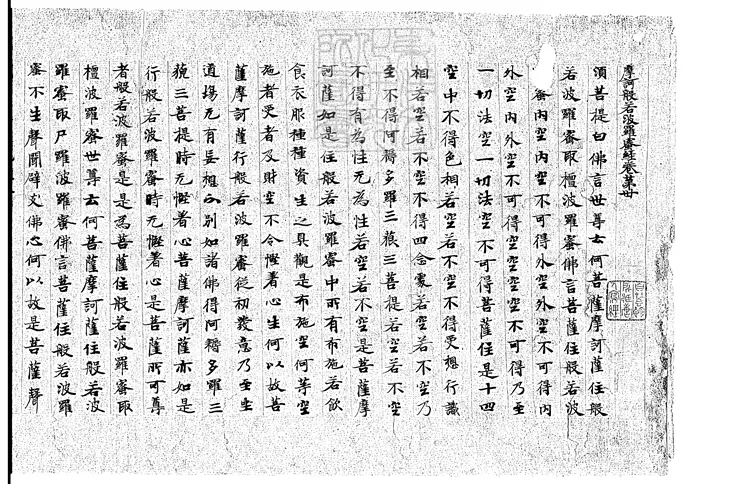 摩訶般若波羅蜜經卷第廿
須菩提白佛言世尊云何菩薩摩訶薩住般
若波羅蜜取檀波羅蜜佛言菩薩住般若波
蜜內空內空不可得外空外空不可得內
外空內外空不可得空空空空不可得乃至
一切法空一切法空不可得菩薩住是十四
空中不得色相若空若不空不得受想行識
相若空若不空不得四念處若空若不空乃
至不得阿耨多羅三藐三菩提若空若不空
不得有為性无為性若空若不空是菩薩摩
訶薩如是住般若波羅蜜中所有布施若飲
食衣服種種資生之具觀是布施空何等空
施者受者及財空不令慳著心生何以故菩
薩摩訶薩行般若波羅蜜從初發意乃至坐
道場无有妄想分別如諸佛得阿耨多羅三
藐三菩提時无慳著心菩薩摩訶薩亦如是
行般若波羅蜜時无慳著心是菩薩所可尊
者般若波羅蜜是是為菩薩住般若波羅蜜取
檀波羅蜜世尊云何菩薩摩訶薩住般若波
羅蜜取尸羅波羅蜜佛言菩薩住般若波羅
蜜不生聲聞辟支佛心何以故是菩薩聲